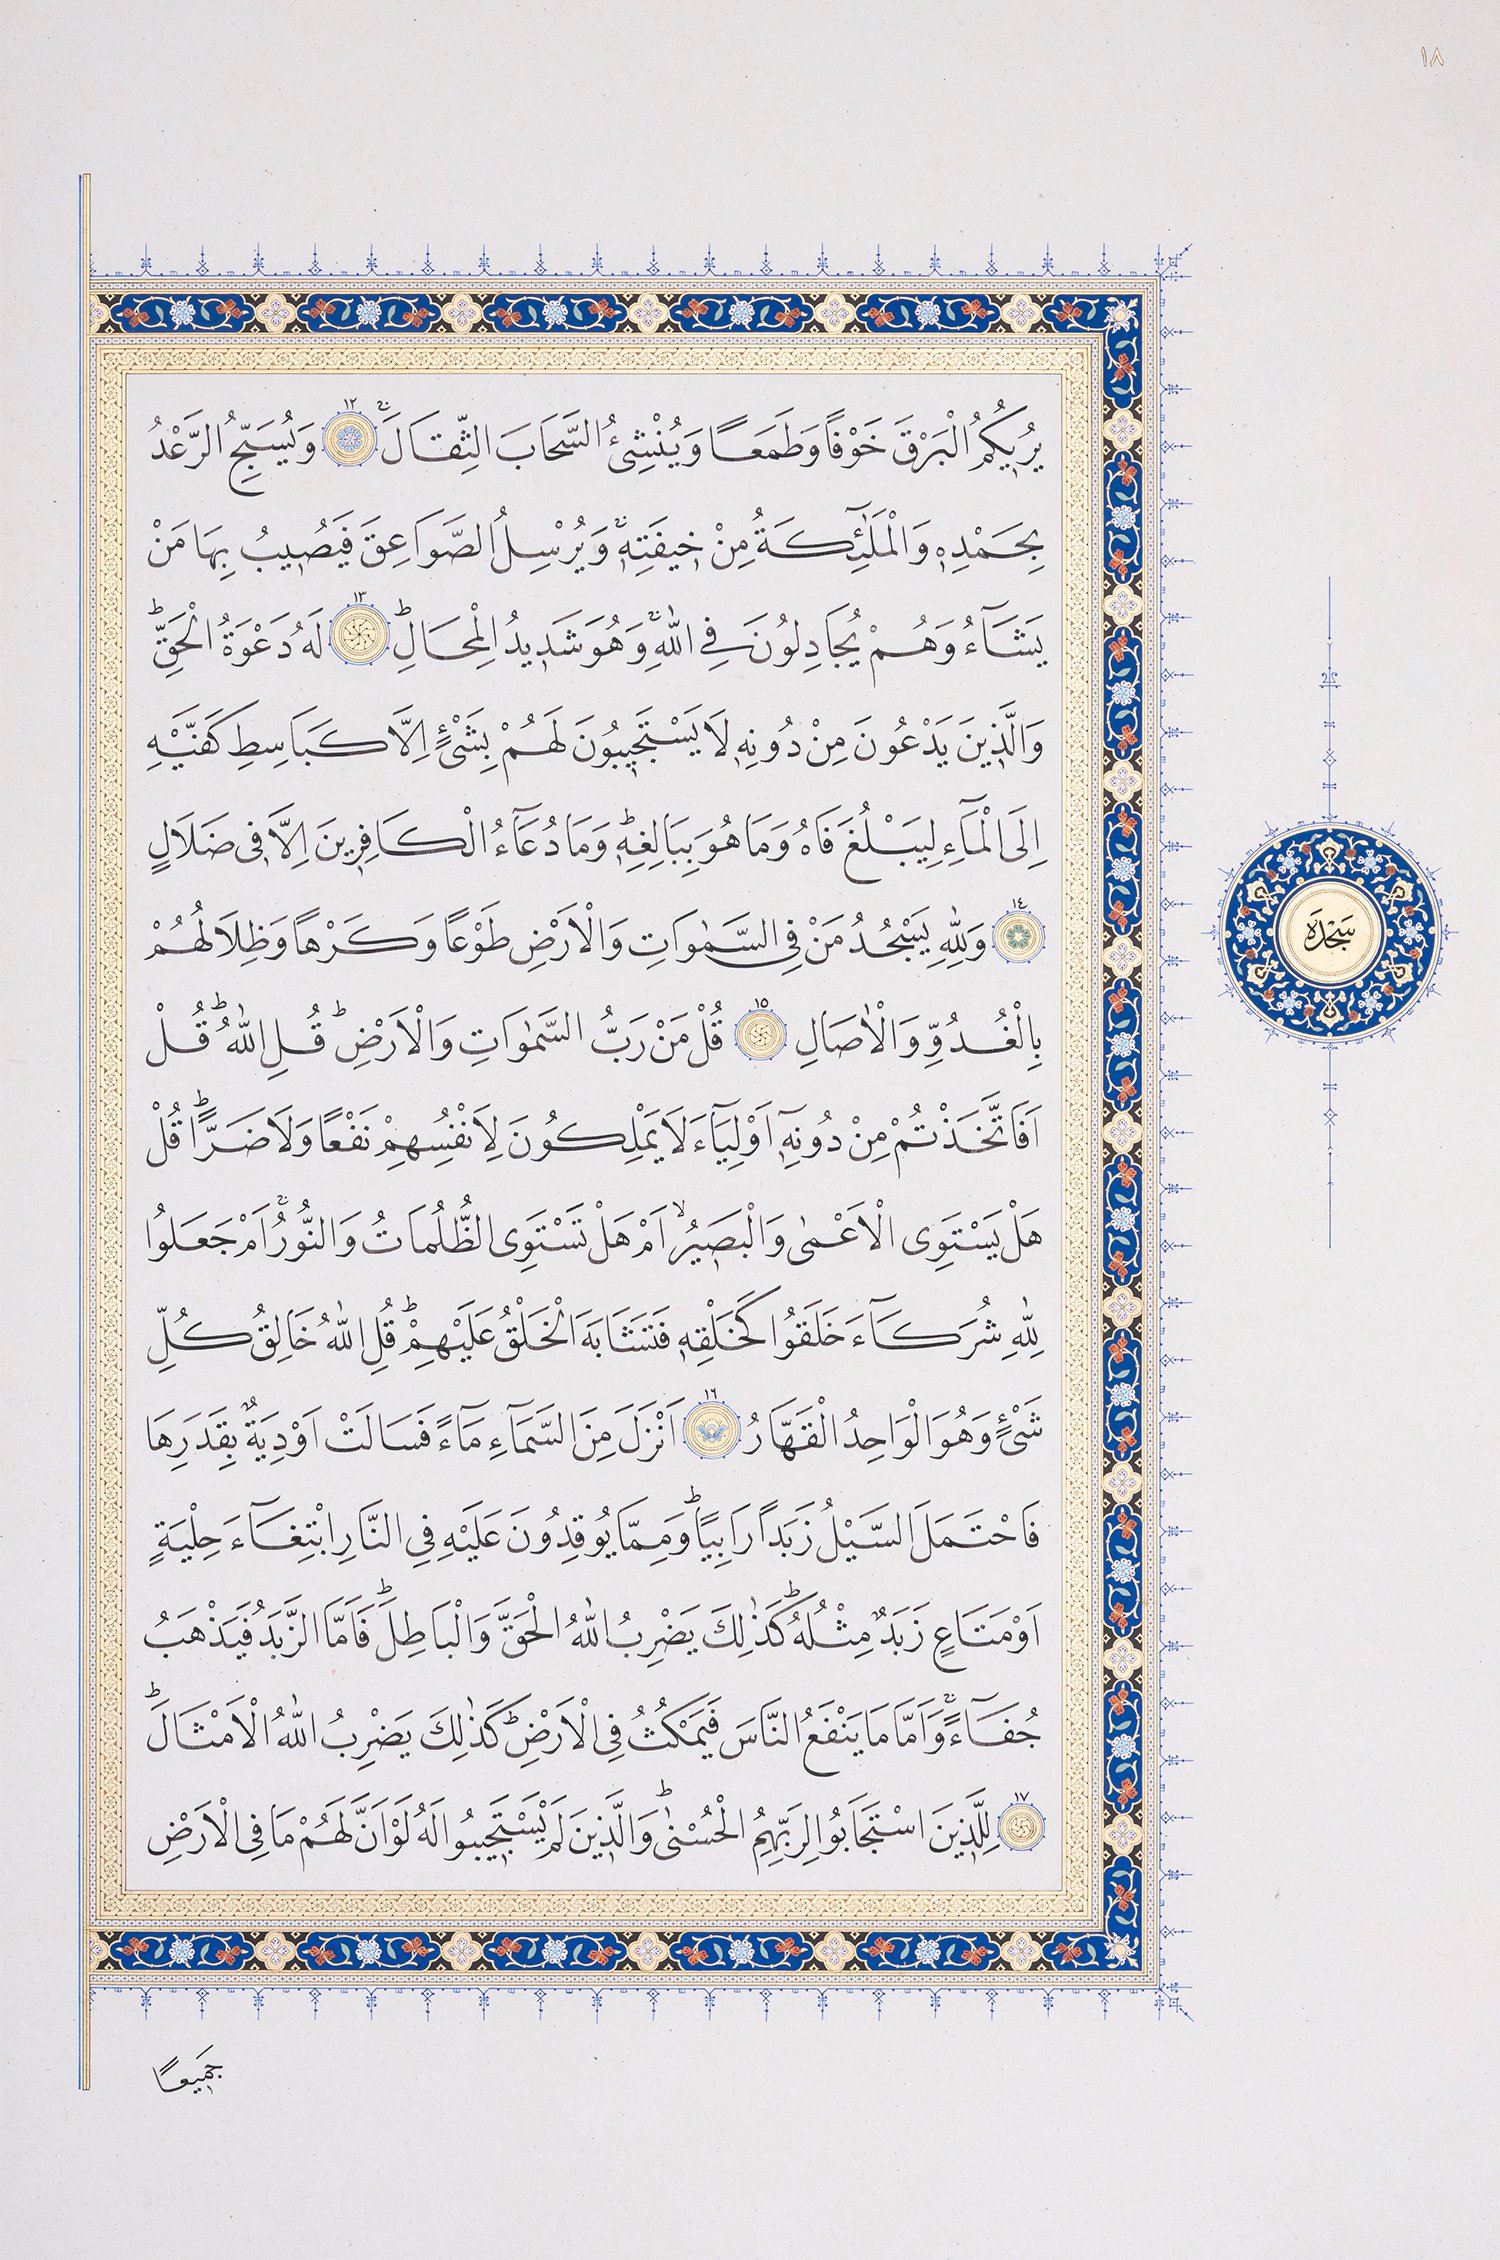 ١٨
يُرٖيكُمُ الْبَرْقَ خَوْفًا وَطَمَعًا وَيُنْشِئُ السَّحَابَ الثِّقَالَۚ ١٢ وَيُسَبِّحُ الرَّعْدُ
بِحَمْدِهٖ وَالْمَلٰٓئِكَةُ مِنْ خٖيفَتِهٖۚ وَيُرْسِلُ الصَّوَاعِقَ فَيُصٖيبُ بِهَا مَنْ
يَشَٓاءُ وَهُمْ يُجَادِلُونَ فِي اللّٰهِۚ وَهُوَ شَدٖيدُ الْمِحَالِؕ ١٣ لَهُ دَعْوَةُ الْحَقِّؕ
وَالَّذٖينَ يَدْعُونَ مِنْ دُونِهٖ لَا يَسْتَجٖيبُونَ لَهُمْ بِشَيْءٍ اِلَّا كَبَاسِطِ كَفَّيْهِ
اِلَى الْمَٓاءِ لِيَبْلُغَ فَاهُ وَمَا هُوَ بِبَالِغِهٖؕ وَمَا دُعَٓاءُ الْكَافِرٖينَ اِلَّا فٖي ضَلَالٍ
١٤ وَلِلّٰهِ يَسْجُدُ مَنْ فِي السَّمٰوَاتِ وَالْاَرْضِ طَوْعًا وَكَرْهًا وَظِلَالُهُمْ
سَجْدَه
بِالْغُدُوِّ وَالْاٰصَالِ ١٥ قُلْ مَنْ رَبُّ السَّمٰوَاتِ وَالْاَرْضِؕ قُلِ اللّٰهُؕ قُلْ
اَفَاتَّخَذْتُمْ مِنْ دُونِهٖٓ اَوْلِيَٓاءَ لَا يَمْلِكُونَ لِاَنْفُسِهِمْ نَفْعًا وَلَا ضَرًّاؕ قُلْ
هَلْ يَسْتَوِي الْاَعْمٰى وَالْبَصٖيرُۙ اَمْ هَلْ تَسْتَوِي الظُّلُمَاتُ وَالنُّورُۚ اَمْ جَعَلُوا
لِلّٰهِ شُرَكَٓاءَ خَلَقُوا كَخَلْقِهٖ فَتَشَابَهَ الْخَلْقُ عَلَيْهِمْؕ قُلِ اللّٰهُ خَالِقُ كُلِّ
شَيْءٍ وَهُوَ الْوَاحِدُ الْقَهَّارُ ١٦ اَنْزَلَ مِنَ السَّمَٓاءِ مَٓاءً فَسَالَتْ اَوْدِيَةٌ بِقَدَرِهَا
فَاحْتَمَلَ السَّيْلُ زَبَدًا رَابِيًاؕ وَمِمَّا يُوقِدُونَ عَلَيْهِ فِي النَّارِ ابْتِغَٓاءَ حِلْيَةٍ
اَوْ مَتَاعٍ زَبَدٌ مِثْلُهُؕ كَذٰلِكَ يَضْرِبُ اللّٰهُ الْحَقَّ وَالْبَاطِلَؕ فَاَمَّا الزَّبَدُ فَيَذْهَبُ
جُفَٓاءًۚ وَاَمَّا مَا يَنْفَعُ النَّاسَ فَيَمْكُثُ فِي الْاَرْضِؕ كَذٰلِكَ يَضْرِبُ اللّٰهُ الْاَمْثَالَؕ
١٧ لِلَّذٖينَ اسْتَجَابُوا لِرَبِّهِمُ الْحُسْنٰىؕ وَالَّذٖينَ لَمْ يَسْتَجٖيبُوا لَهُ لَوْ اَنَّ لَهُمْ مَا فِي الْاَرْضِ
جَمٖيعًا